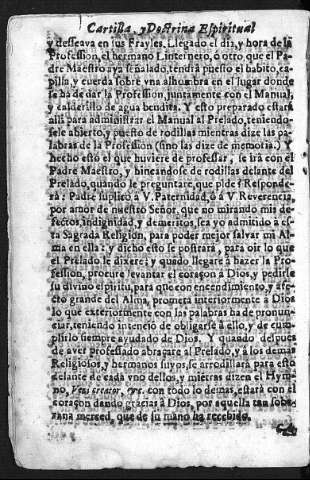 Cartilla, y Doctrina Espiritual
y desseava en sus Frayles. Llegado el dia, y hora de la
Profession, el hermano Linternero, ò otro que el Pa-
dre Maestro aya señalado, tendrà puesto el habito, ca-
pilla, y cuerda sobre vna alhumbra en el lugar donde
se ha de dar la Profession, juntamente con el Manual,
y calderillo de agua bendita. Y esto preparado estarà
alli para administrar el Manual al Prelado, teniendo-
sele abierto, y puesto de rodillas mientras dize las pa-
labras de la Profession (sino las dize de memoria.) Y
hecho esto el que huviere de professar, se irà con el
Padre Maestro, y hincandose de rodillas delante del
Prelado, quando le preguntare, que pide? Responde-
rà: Padre suplico à V. Paternidad, ò à V. Reverencia,
por amor de nuestro Señor, que no mirando mis de-
fectos, indignidad, y demeritos, sea yo admitido à es-
ta Sagrada Religion, para poder mejor salvar mi Al-
ma en ella: y dicho esto se postrarà, para oir lo que
el Prelado le dixere; y quãdo llegare à hazer la Pro-
fession, procure levantar el coraçon à Dios, y pedirle
su divino espiritu, para que con encendimiento, y afe-
cto grande del Alma, prometa interiormente à Dios
lo que exteriormente con las palabras ha de pronun-
ciar, teniendo intenciõ de obligarse à ello, y de cum-
plirlo siempre ayudado de Dios. Y quando despues
de aver professado abraçare al Prelado, y à los demas
Religiosos, y hermanos suyos, se arrodillarà para esto
delante de cada vno dellos, y miẽtras dizen el Hym-
no, Veni creator, &c. con todo lo demas, estarà con el
coraçon dando gracias à Dios, por aquella tan sobe-
rana merced, que de su mano ha recebido.